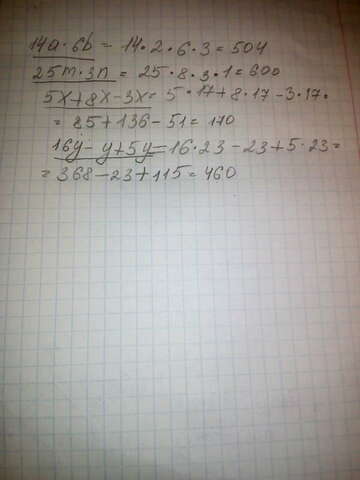 14a·6b = 14·2·6·3=504
25m·3n = 25·8·3·1=600
5x+8x-3x= 5·17+8·17-3·17·
= 85+136-51=170
16y-y+5y=16·23-23+5·23=
= 368-23+115=460